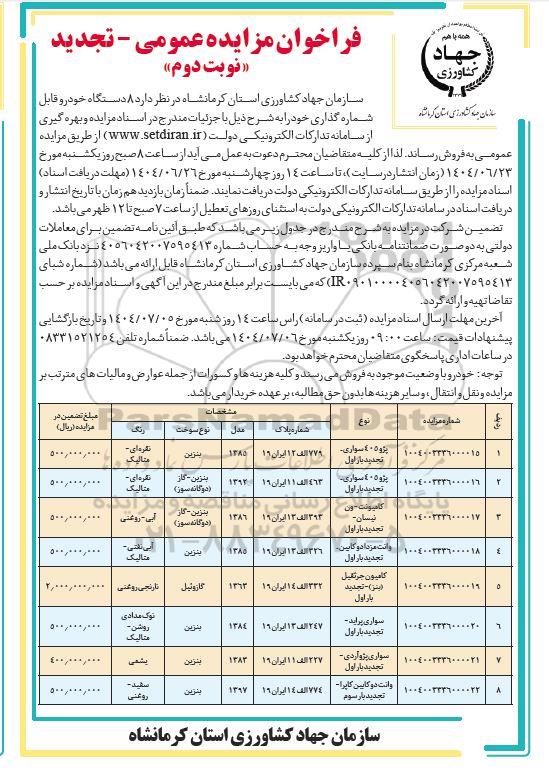 همه با هم
جهاد
کشاورزی
سازمان جهاد کشاورزی استان کرمانشاه
فراخوان مزایده عمومی - تجدید
«نوبت دوم»
سازمان جهاد کشاورزی استان کرمانشاه در نظر دارد ۸ دستگاه خودرو قابل
شماره گذاری خود را به شرح ذیل با جزئیات مندرج در اسناد مزایده و بهره گیری
از سامانه تدارکات الکترونیکی دولت (www.setdiran.ir) از طریق مزایده
عمومی به فروش رساند. لذا از کلیه متقاضیان محترم دعوت به عمل می آید از ساعت ۸ صبح روز یکشنبه مورخ
۱۴۰۴/۰۶/۲۳ (زمان انتشار در سایت)، تا ساعت ۱۴ روز چهارشنبه مورخ ۱۴۰۴/۰۶/۲۶ (مهلت دریافت اسناد)
اسناد مزایده را از طریق سامانه تدارکات الکترونیکی دولت دریافت نمایند. ضمناً زمان بازدید هم زمان با تاریخ انتشار و
دریافت اسناد در سامانه تدارکات الکترونیکی دولت به استثنای روزهای تعطیل از ساعت ۷ صبح تا ۱۲ ظهر می باشد.
تضمین شرکت در مزایده به شرح مندرج در جدول زیر می باشد که طبق آئین نامه تضمین برای معاملات
دولتی به دو صورت ضمانتنامه بانکی یا واریز وجه به حساب شماره ۴۰۵۶۰۴۲۰۰۷۵۹۵۴۱۳ نزد بانک ملی
شعبه مرکزی کرمانشاه بنام سپرده سازمان جهاد کشاورزی استان کرمانشاه قابل ارائه می باشد (شماره شبای
IR۰۹۰۱۰۰۰۰۴۰۵۶۰۴۲۰۰۷۵۹۵۴۱۳) که می بایست برابر مبلغ مندرج در این آگهی و اسناد مزایده بر حسب
تقاضا تهیه و ارائه گردد.
آخرین مهلت ارسال اسناد مزایده (ثبت در سامانه) راس ساعت ۱۴ روز شنبه مورخ ۱۴۰۴/۰۷/۰۵ و تاریخ بازگشایی
پیشنهادات قیمت: ساعت ۰۹:۰۰ روز یکشنبه مورخ ۱۴۰۴/۰۷/۰۶ می باشد. ضمناً شماره تلفن ۰۸۳۳۱۵۲۱۲۵۴
در ساعات اداری پاسخگوی متقاضیان محترم خواهد بود.
توجه: خودرو با وضعیت موجود به فروش می رسند و کلیه هزینه ها و کسورات از جمله عوارض و مالیات های مترتب بر
مزایده و نقل و انتقال، و سایر هزینه ها بدون حق مطالبه، بر عهده خریدار می باشد.
ردیف شماره مزایده نوع مشخصات مبلغ تضمین در مزایده (ریال)
شماره پلاک مدل نوع سوخت رنگ
۱ ۱۰۰۴۰۰۳۳۳۶۰۰۰۰۱۵ پژو ۴۰۵ سواری- تجدید بار اول ۷۷۹ الف ۱۲ ایران ۱۹ ۱۳۸۵ بنزین نقره ای- متالیک ۵۰۰,۰۰۰,۰۰۰
۲ ۱۰۰۴۰۰۳۳۳۶۰۰۰۰۱۶ پژو ۴۰۵ سواری- تجدید بار اول ۴۶۳ الف ۱۱ ایران ۱۹ ۱۳۹۲ بنزین-گاز (دوگانه سوز) نقره ای- متالیک ۵۰۰,۰۰۰,۰۰۰
۳ ۱۰۰۴۰۰۳۳۳۶۰۰۰۰۱۷ کامیونت-ون نیسان- تجدید بار اول ۳۹۳ الف ۱۳ ایران ۱۹ ۱۳۸۶ بنزین-گاز (دوگانه سوز) آبی-روغنی ۵۰۰,۰۰۰,۰۰۰
۴ ۱۰۰۴۰۰۳۳۳۶۰۰۰۰۱۸ وانت مزدا دو کابین- تجدید بار اول ۳۲۶ الف ۱۲ ایران ۱۹ ۱۳۸۵ بنزین آبی نفتی- متالیک ۵۰۰,۰۰۰,۰۰۰
۵ ۱۰۰۴۰۰۳۳۳۶۰۰۰۰۱۹ کامیون جرثقیل (بنز)-تجدید بار اول ۳۳۲ الف ۱۴ ایران ۱۹ ۱۳۶۳ گازوئیل نارنجی روغنی ۲,۰۰۰,۰۰۰,۰۰۰
۶ ۱۰۰۴۰۰۳۳۳۶۰۰۰۰۲۰ سواری پراید- تجدید بار اول ۲۴۷ الف ۱۳ ایران ۱۹ ۱۳۸۴ بنزین نوک مدادی روشن- متالیک ۵۰۰,۰۰۰,۰۰۰
۷ ۱۰۰۴۰۰۳۳۳۶۰۰۰۰۲۱ سواری پژو آردی- تجدید بار اول ۲۲۷ الف ۱۱ ایران ۱۹ ۱۳۸۳ بنزین یشمی ۴۰۰,۰۰۰,۰۰۰
۸ ۱۰۰۴۰۰۳۳۳۶۰۰۰۰۲۲ وانت دو کابین کاپرا- تجدید بار سوم ۷۷۴ الف ۱۴ ایران ۱۹ ۱۳۹۷ بنزین سفید- روغنی ۵۰۰,۰۰۰,۰۰۰
ParsNamadData
پایگاه اطلاع رسانی مناقصه و مزایده
۰۲۱-۸۸۳۴۹۶۷۰-۵
سازمان جهاد کشاورزی استان کرمانشاه